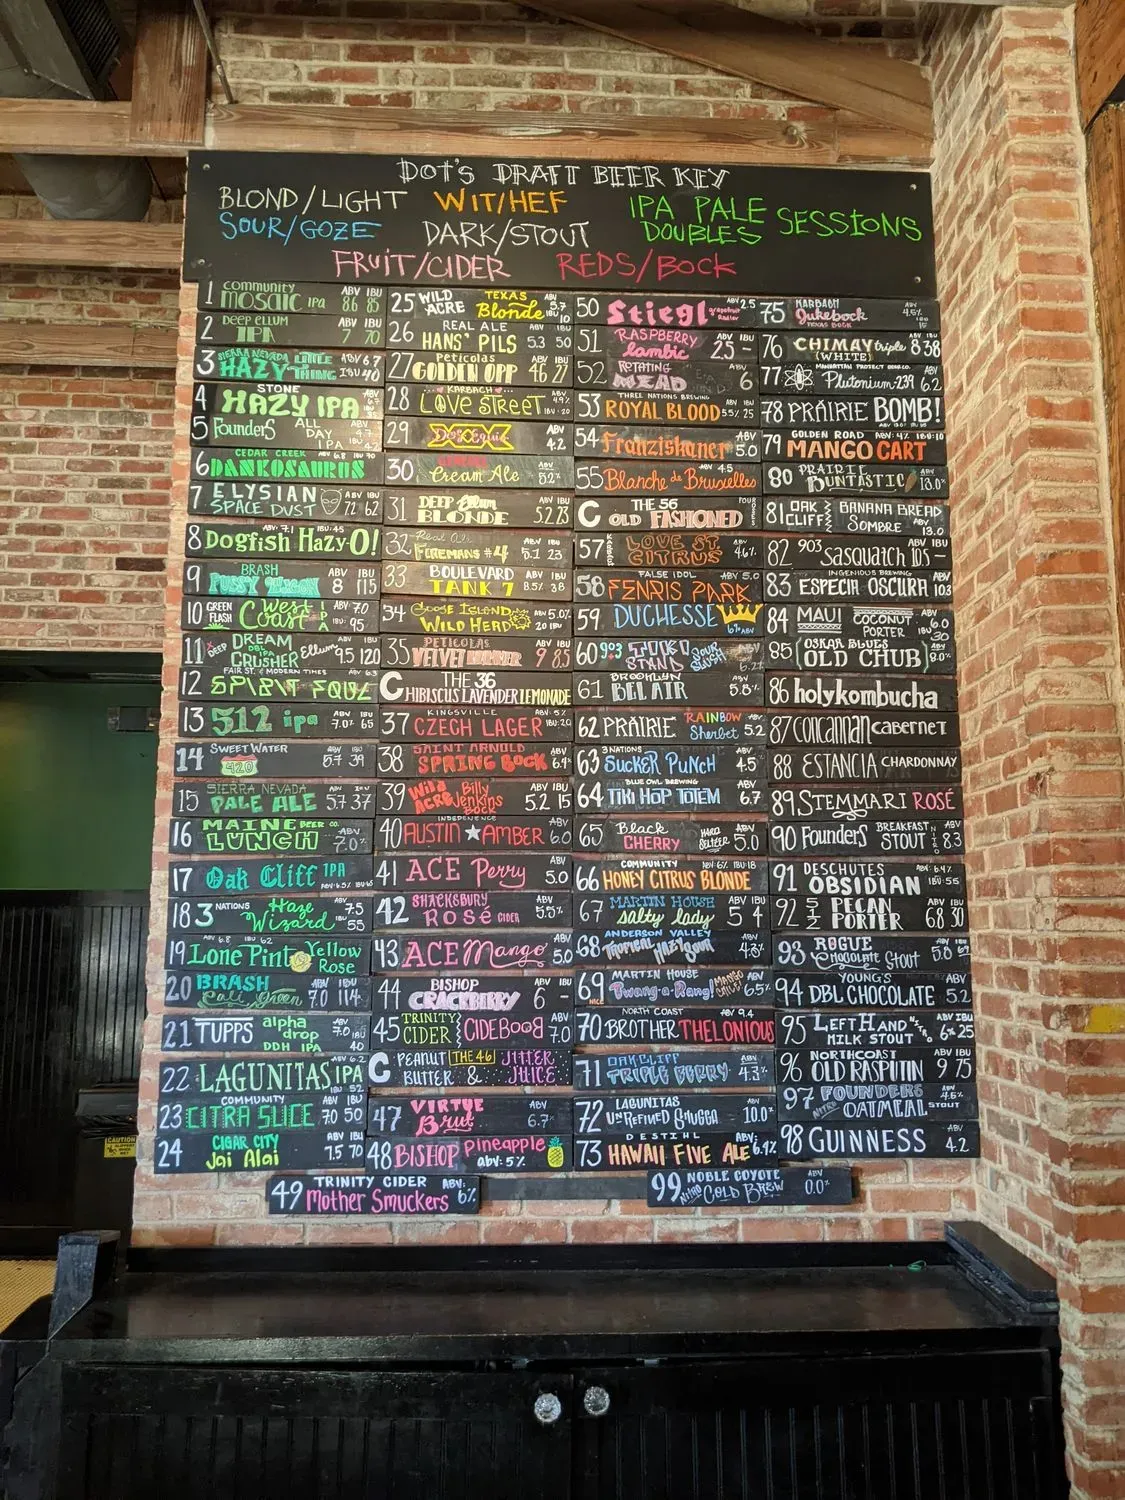 DOT'S DRAFT BEER KEY
BLOND/LIGHT WIT/HEF IPA PALE SESSIONS
SOUR/GOZE DARK/STOUT DOUBLES
FRUIT/CIDER REDS/BOCK
1 COMMUNITY MOSAIC IPA ABV 8.6 IBU 85
2 DEEP ELLUM IPA ABV 7 IBU 70
3 SIERRA NEVADA HAZY LITTLE THING ABV 6.7 IBU 40
4 STONE HAZY IPA
5 FOUNDERS ALL DAY IPA
6 CEDAR CREEK DANKOSAURUS ABV 6.8 IBU 70
7 ELYSIAN SPACE DUST ABV 7.2 IBU 62
8 Dogfish Hazy-O! ABV: 7.1 IBU: 45
9 BRASH PUSSY WAGON ABV 8 IBU 115
10 GREEN FLASH West Coast IPA ABV 7.0 IBU: 95
11 DEEP Ellum DREAM CRUSHER DBL IPA ABV 9.5 IBU 120
12 FAIR ST. & MODERN TIMES ABV 6.3
13 512 ipa ABV 7.0% IBU 65
14 SWEETWATER 420 ABV 5.7 IBU 39
15 SIERRA NEVADA PALE ALE ABV 5.7 IBU 37
16 MAINE BEER CO. LUNCH ABV 7.0%
17 Oak Cliff IPA
18 3 NATIONS Haze Wizard ABV 7.5 IBU 55
19 Lone Pint Yellow Rose ABV 6.8 IBU 62
20 BRASH Cali Green ABV 7.0 IBU 114
21 TUPPS alpha drop DDH IPA ABV 7.0 IBU 40
22 LAGUNITAS IPA ABV 6.2 IBU 52
23 COMMUNITY CITRA SLICE ABV 7.0 IBU 50
24 CIGAR CITY Jai Alai ABV 7.5 IBU 70
25 WILD ACRE TEXAS Blonde ABV 5.7 IBU 10
26 REAL ALE HANS' PILS ABV 5.3 IBU 50
27 Peticolas GOLDEN OPP ABV 4.6 IBU 27
28 KARBACH LOVE STREET ABV 4.9% IBU: 20
29 Dos Equis XX ABV 4.2
30 Cream Ale ABV 5.2%
31 DEEP Ellum BLONDE ABV 5.2 IBU 23
32 Real Ale FIREMANS #4 ABV 5.1 IBU 23
33 BOULEVARD TANK 7 ABV 8.5% IBU 38
34 GOOSE ISLAND WILD HERD ABV 5.0% 20 IBU
35 PETICOLAS VELVET HAMMER ABV 9 IBU 85
C THE 36 HIBISCUS LAVENDER LEMONADE
37 KINGSVILLE CZECH LAGER ABV: 5% IBU: 20
38 SAINT ARNOLD SPRING BOCK ABV 6.9%
39 Wild ACRE Billy Jenkins BOCK ABV 5.2 IBU 15
40 INDEPENDENCE AUSTIN AMBER ABV 6.0
41 ACE Perry ABV 5.0
42 SHACKSBURY ROSÉ CIDER ABV 5.5%
43 ACE Mango ABV 5.0
44 BISHOP CRACKBERRY ABV 6 IBU -
45 TRINITY CIDER CIDEBOOB ABV 7.0
C THE 46 PEANUT BUTTER & JITTER JUICE
47 VIRTUE Brut ABV 6.7%
48 BISHOP pineapple abv: 5%
49 TRINITY CIDER Mother Smuckers ABV: 6%
50 Stiegl grapefruit Radler ABV 2.5
51 RASPBERRY lambic ABV 2.5 IBU -
52 ROTATING MEAD ABV 6
53 THREE NATIONS BREWING ROYAL BLOOD ABV 5.5% IBU 25
54 Franziskaner ABV 5.0
55 Blanche de Bruxelles ABV 4.5
C THE 56 OLD FASHIONED FOUR ROSES
57 KARBACH LOVE ST CITRUS ABV 4.6%
58 FALSE IDOL FENRIS PARK ABV 5.0
59 DUCHESSE 6% ABV
60 903 STAND SOUR SLUSH ABV 6.2%
61 BROOKLYN BEL AIR ABV 5.8%
62 PRÄIRIE RAINBOW Sherbet ABV 5.2
63 3 NATIONS SUCKER PUNCH ABV 4.5%
64 BLUE OWL BREWING TIKI HOP TOTEM ABV 6.7
65 Black CHERRY HARD SELTZER ABV 5.0
66 COMMUNITY HONEY CITRUS BLONDE ABV: 6% IBU: 18
67 MARTIN HOUSE salty lady ABV 5 IBU 4
68 ANDERSON VALLEY TROPICAL HAZY SOUR ABV 4.3%
69 NICE MARTIN HOUSE Twang-a-Rang! MANGO ABV 6.5%
70 NORTH COAST BROTHER THELONIOUS ABV 9.4
71 OAK CLIFF TRIPLE BERRY ABV 4.3%
72 LAGUNITAS UNREFINED SHUGGA ABV 10.0%
73 DESTIHL HAWAII FIVE ALE ABV: 6.9%
75 KARBACH Jukebock TEXAS BOCK ABV 4.5%
76 CHIMAY (WHITE) triple ABV 8 IBU 38
77 MANHATTAN PROJECT BEER CO. Plutonium-239 ABV 6.2
78 PRÄIRIE BOMB!
79 GOLDEN ROAD MANGO CART ABV: 4% IBU: 10
80 PRAIRIE BUNTASTIC ABV 13.0%
81 OAK CLIFF BANANA BREAD SOMBRE ABV 13.0
82 903 SASQUATCH ABV 10.5 IBU -
83 INGENIOUS BREWING ESPECIA OSCURA ABV 10.3
84 MAUI COCONUT PORTER ABV 6.0 IBU 30
85 OSKAR BLUES OLD CHUB ABV 8.0%
86 holykombucha
87 concannan cabernet
88 ESTANCIA CHARDONNAY
89 STEMMARI ROSÉ
90 FOUNDERS BREAKFAST STOUT NITRO ABV 8.3
91 DESCHUTES OBSIDIAN ABV: 6.4% IBU: 55
92 512 PECAN PORTER ABV 6.8 IBU 30
93 ROGUE CHOCOLATE Stout ABV 5.8 IBU 69
94 YOUNG'S DBL CHOCOLATE ABV 5.2
95 LEFT HAND MILK STOUT ABV 6% IBU 25
96 NORTHCOAST OLD RASPUTIN ABV 9 IBU 75
97 NITRO FOUNDERS OATMEAL STOUT ABV 4.5%
98 GUINNESS ABV 4.2
99 NITRO NOBLE COYOTE COLD BREW ABV 0.0%
CAUTION